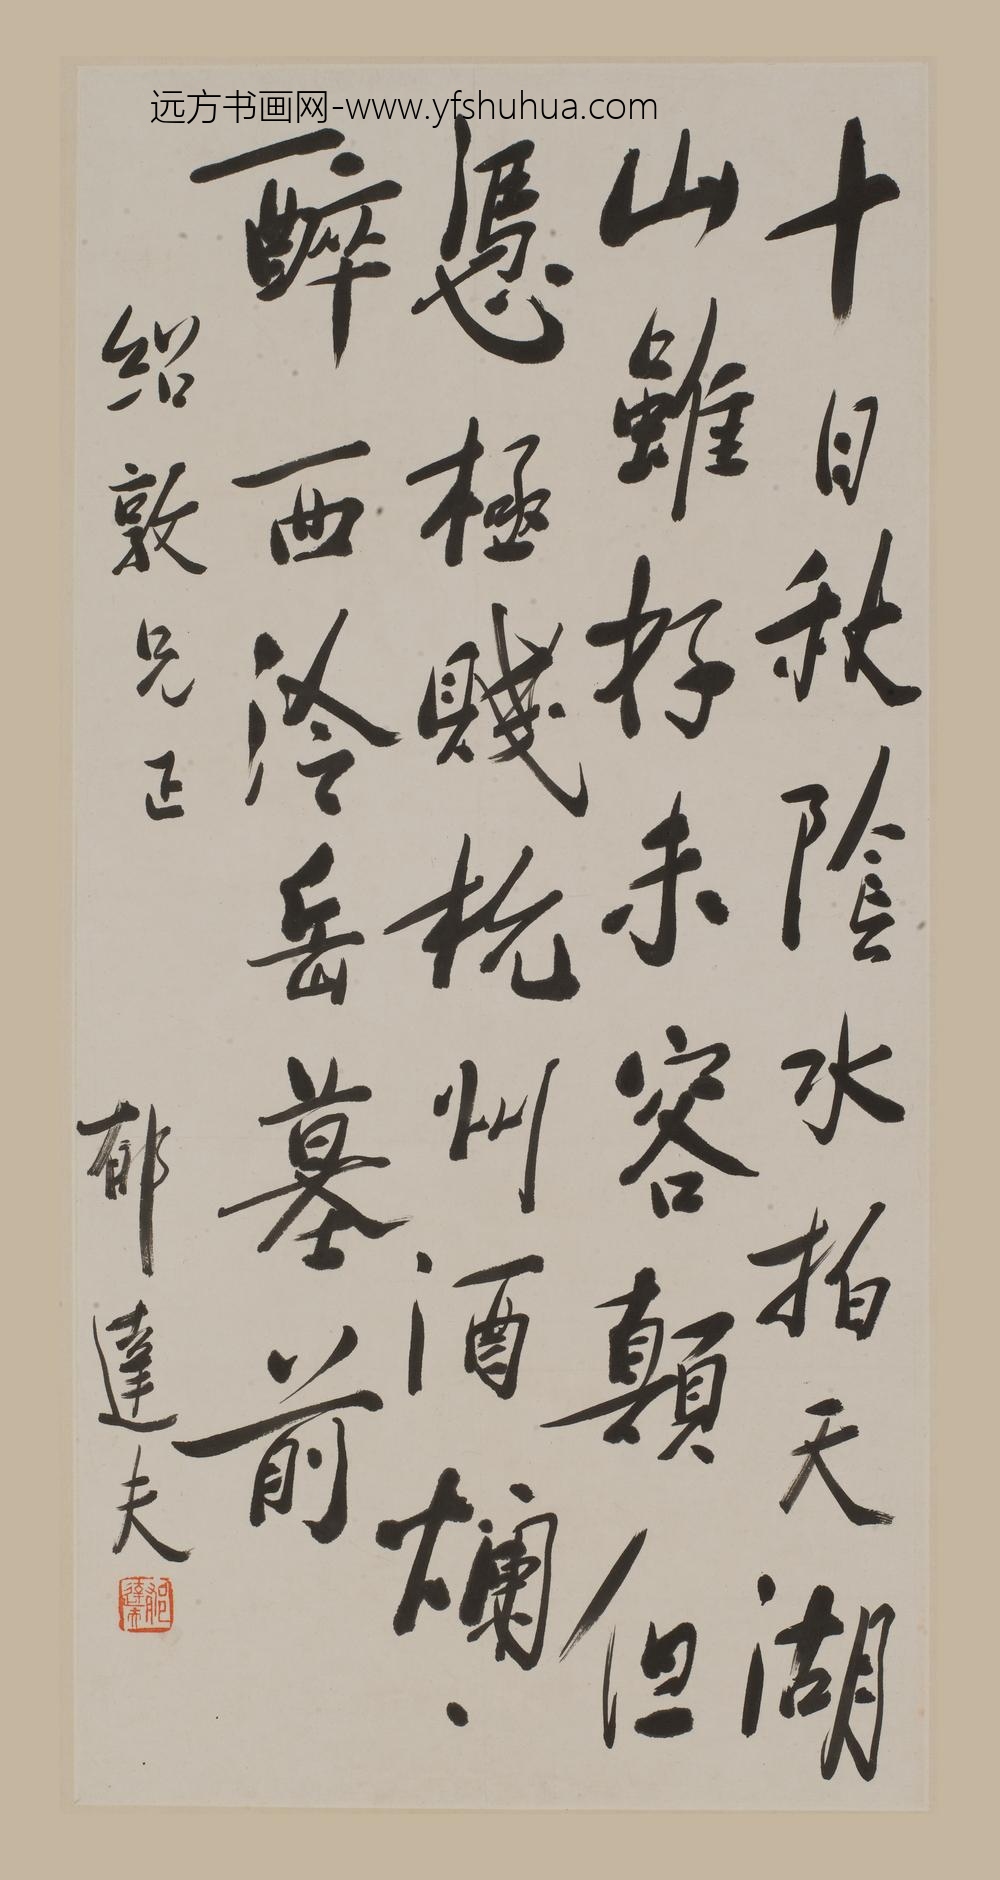 远方书画网-www.yfshuhua.com
十日秋陰水拍天湖
山雖好未容顛但
憑極賤杭州酒爛〻
醉西泠岳墓前
紹敦兄正
郁達夫
郁達夫